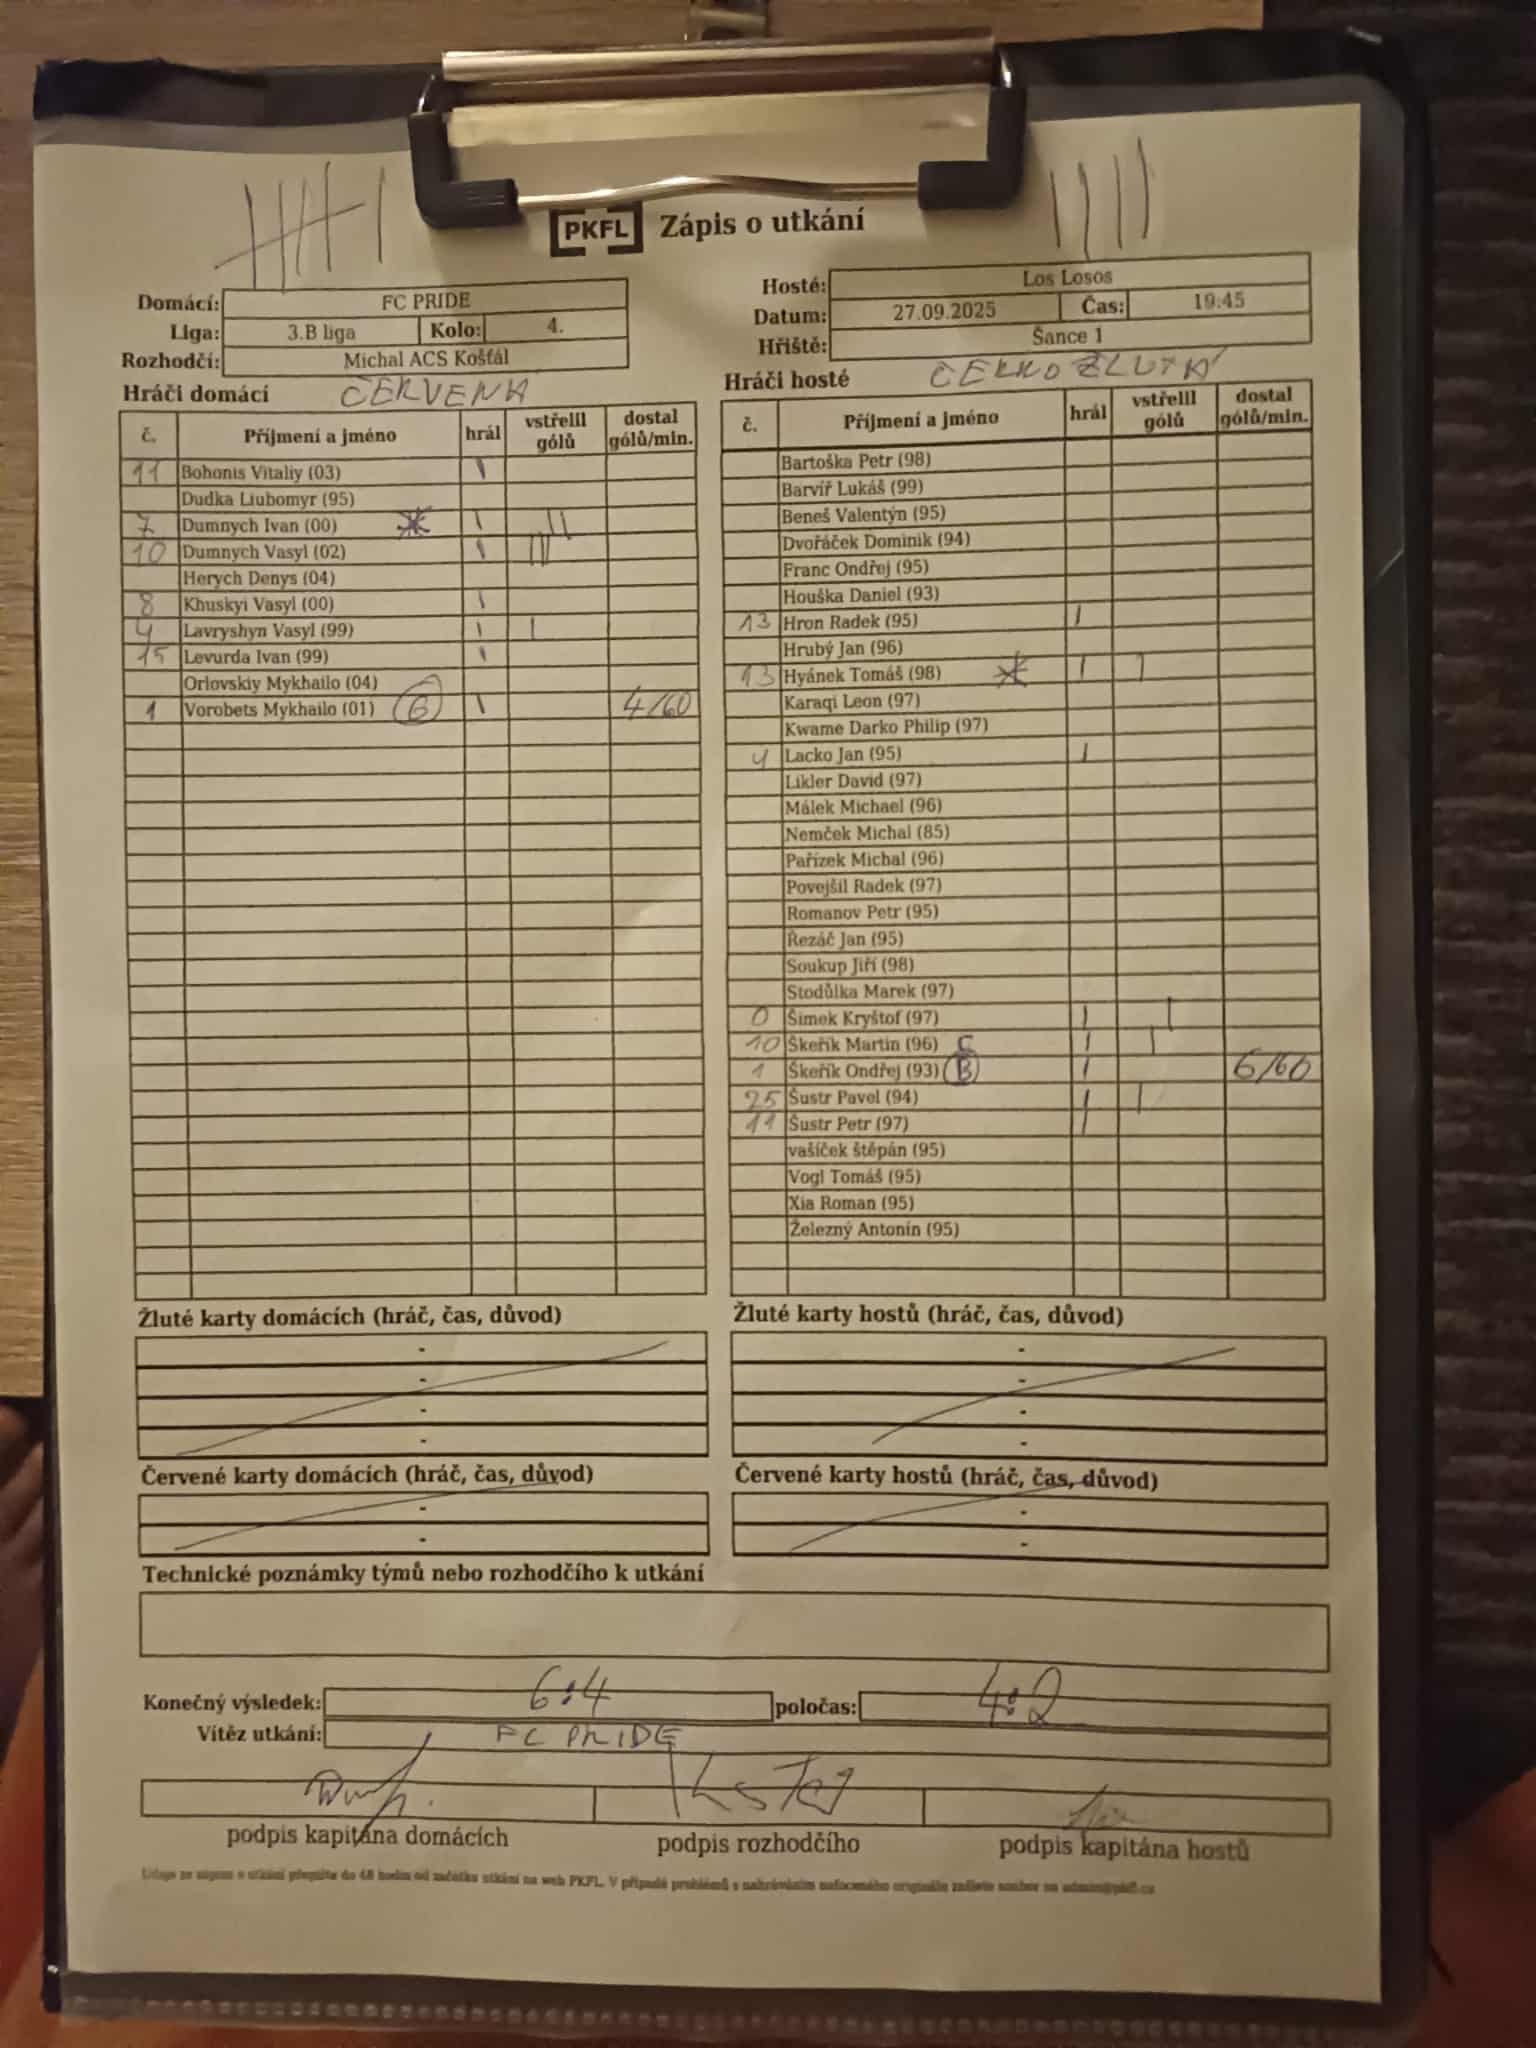 PKFL Zápis o utkání
Domácí: FC PRIDE
Liga: 3.B liga Kolo: 4.
Rozhodčí: Michal ACS Košťál
Hosté: Los Losos
Datum: 27.09.2025 Čas: 19:45
Hřiště: Šance 1
Hráči domácí ČERVENÁ
č. Příjmení a jméno hrál vstřelil gólů dostal gólů/min.
11 Bohonis Vitaliy (03) I
Dudka Liubomyr (95)
7 Dumnych Ivan (00) * I II
10 Dumnych Vasyl (02) I III
Herych Denys (04)
8 Khuskyi Vasyl (00) I
4 Lavryshyn Vasyl (99) I I
15 Levurda Ivan (99) I
Orlovskiy Mykhailo (04)
1 Vorobets Mykhailo (01) I 4/60
Hráči hosté
č. Příjmení a jméno hrál vstřelil gólů dostal gólů/min.
Bartoška Petr (98)
Barvíř Lukáš (99)
Beneš Valentýn (95)
Dvořáček Dominik (94)
Franc Ondřej (95)
Houška Daniel (93)
13 Hron Radek (95) I
Hrubý Jan (96)
13 Hyánek Tomáš (98) * I I
Karaqi Leon (97)
Kwame Darko Philip (97)
4 Lacko Jan (95) I
Likler David (97)
Málek Michael (96)
Nemček Michal (85)
Pařízek Michal (96)
Povejšil Radek (97)
Romanov Petr (95)
Řezáč Jan (95)
Soukup Jiří (98)
Stodůlka Marek (97)
0 Šimek Kryštof (97) I I
10 Škeřík Martin (96) C I I
1 Škeřík Ondřej (93) B I 6/60
25 Šustr Pavel (94) I I
11 Šustr Petr (97) I
vašíček štěpán (95)
Vogl Tomáš (95)
Xia Roman (95)
Železný Antonín (95)
Žluté karty domácích (hráč, čas, důvod)
-
-
-
-
Žluté karty hostů (hráč, čas, důvod)
-
-
-
-
Červené karty domácích (hráč, čas, důvod)
-
-
Červené karty hostů (hráč, čas, důvod)
-
-
Technické poznámky týmů nebo rozhodčího k utkání
Konečný výsledek: 6:4 poločas: 4:2
Vítěz utkání: FC PRIDE
podpis kapitána domácích podpis rozhodčího podpis kapitána hostů
Údaje ze zápisu o utkání přepište do 48 hodin od začátku utkání na web PKFL. V případě problémů s nahráváním nafoceného originálu zašlete soubor na admin@pkfl.cz